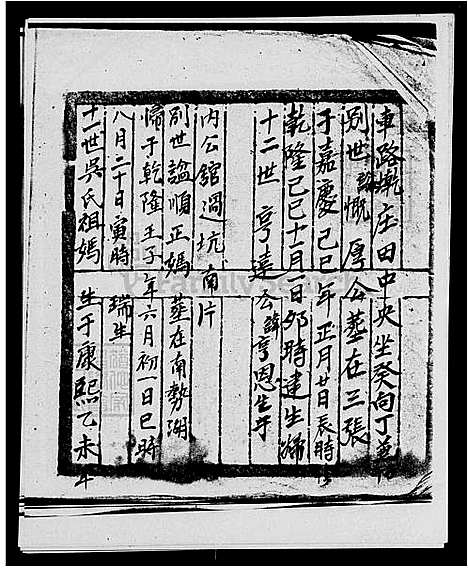 車路墘庄田中央坐癸向丁兼
別世諡慨厚公葬在三張
于嘉慶己巳年正月廿日辰時
乾隆己巳十二月一日卯時建生歸
十二世亨達公諱亨恩生于
內公舘過坑南片
別世諡順正媽葬在南勢湖
歸于乾隆壬子年六月初一日巳時
八月二十日寅時瑞生
十一世吳氏祖媽生于康熙乙未年
FamilySearch